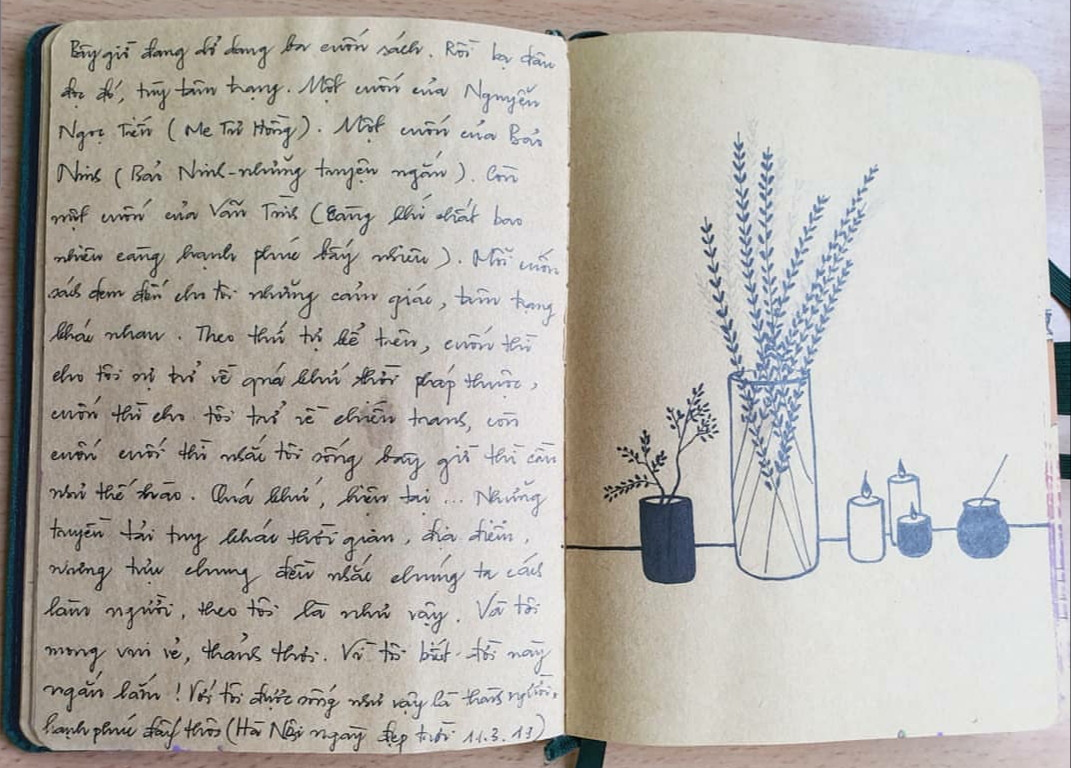 Bây giờ đang dở dang ba cuốn sách. Rồi bạ đâu
đọc đó, tùy tâm trạng. Một cuốn của Nguyễn
Ngọc Tiến (Me Tư Hồng). Một cuốn của Bảo
Ninh (Bảo Ninh - những truyện ngắn). Còn
một cuốn của Vãn Tình (Càng khí chất bao
nhiêu càng hạnh phúc bấy nhiêu). Mỗi cuốn
sách đem đến cho tôi những cảm giác, tâm trạng
khác nhau. Theo thứ tự kể trên, cuốn thì
cho tôi sự trở về quá khứ thời pháp thuộc,
cuốn thì cho tôi trở về chiến tranh, còn
cuốn cuối thì nhắc tôi sống bây giờ thì cần
như thế nào. Quá khứ, hiện tại ... Những
truyền tải tuy khác thời gian, địa điểm,
nhưng tựu chung đều nhắc chúng ta cách
làm người, theo tôi là như vậy. Và tôi
mong vui vẻ, thảnh thơi. Vì tôi biết đời này
ngắn lắm! Với tôi được sống như vậy là thành người,
hạnh phúc đấy thôi (Hà Nội ngày đẹp trời 11.3.19)